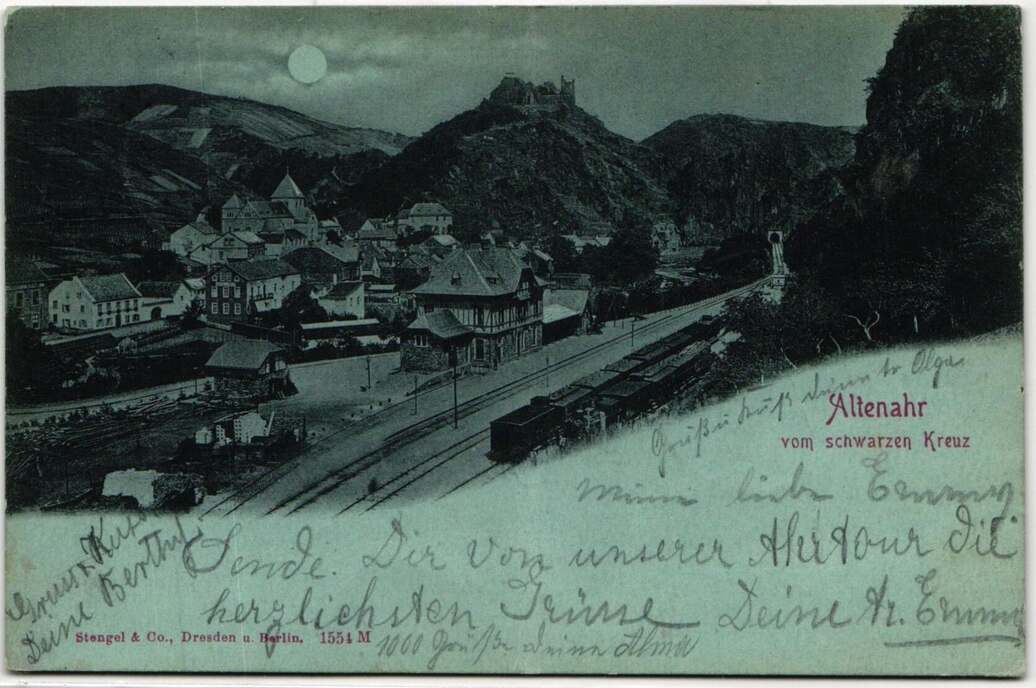 Altenahr
vom schwarzen Kreuz
Gruß u. Kuß Deine tr. Olga.
Meine liebe Emmy
Sende. Dir von unserer Ahrtour die
herzlichsten Grüsse Deine tr. Emmy
1000 Grüße Deine Alma
Gruss u. Kuss
Deine Berthy.
Stengel & Co., Dresden u. Berlin. 1554 M